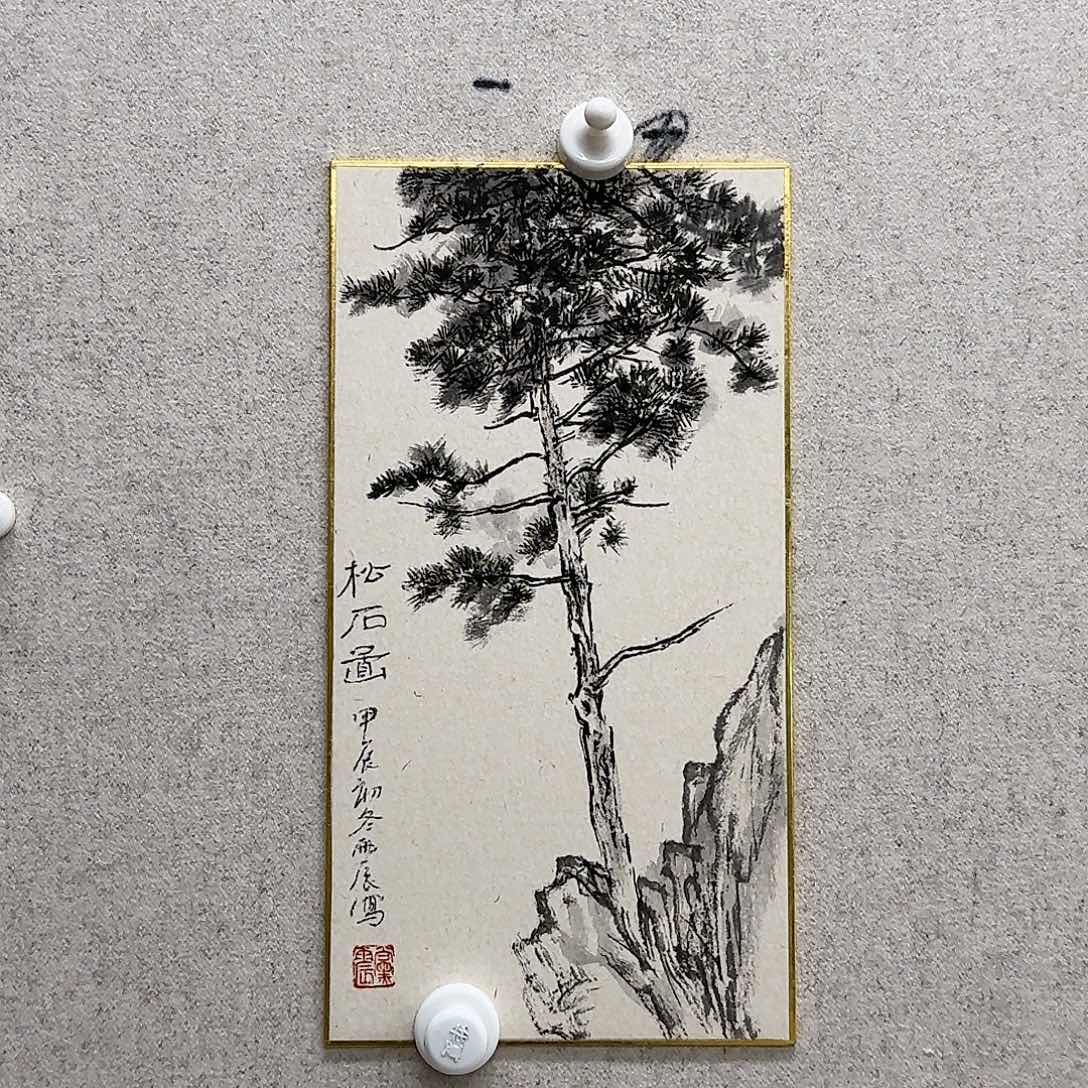 松石圖 甲辰初冬雨辰寫